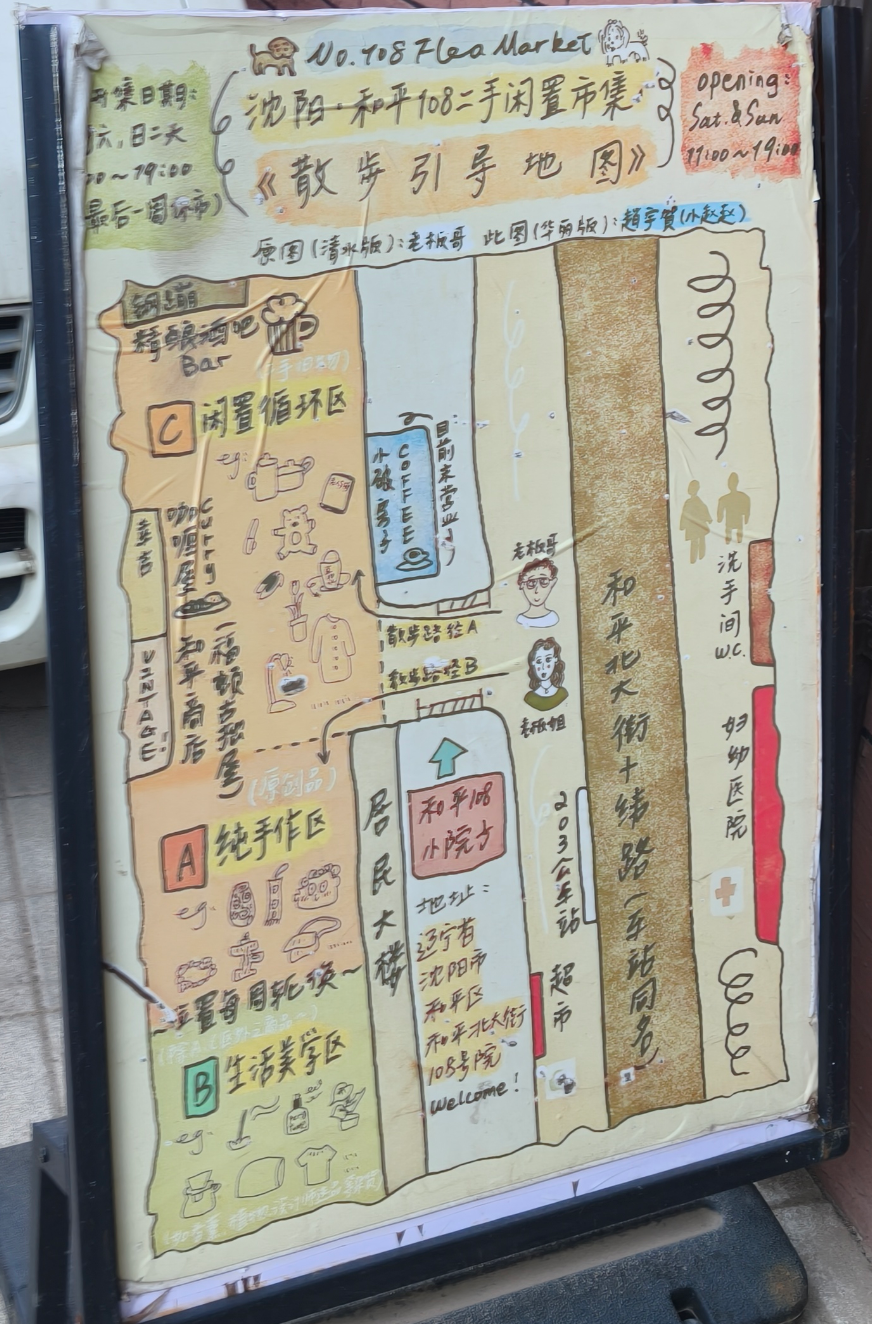 No.108 Flea Market
沈阳·和平108二手闲置市集
《散步引导地图》
开集日期:
六,日二天
00~19:00
最后一周休市)
opening:
Sat.&Sun
11:00~19:00
原图(清水版):老板哥 此图(华丽版):趙宇贺(小赵赵)
钢蹦
精酿酒吧
Bar
C 闲置循环区
eg:
幸吉
咖喱屋
Curry
VINTAGE
和平商店
一福顿古捉屋
小破房子
COFFEE
目前未营业
散步路径A
散步路径B
老板哥
老板姐
(原创品)
A 纯手作区
eg.
~位置每周轮换~
B 生活美学区
eg.
居民大楼
和平108
小院方
地址:
辽宁省
沈阳市
和平区
和平北大街
108号院
Welcome!
203公车站
超市
和平北大街十纬路(车站同名)
洗手间
W.C.
妇幼医院